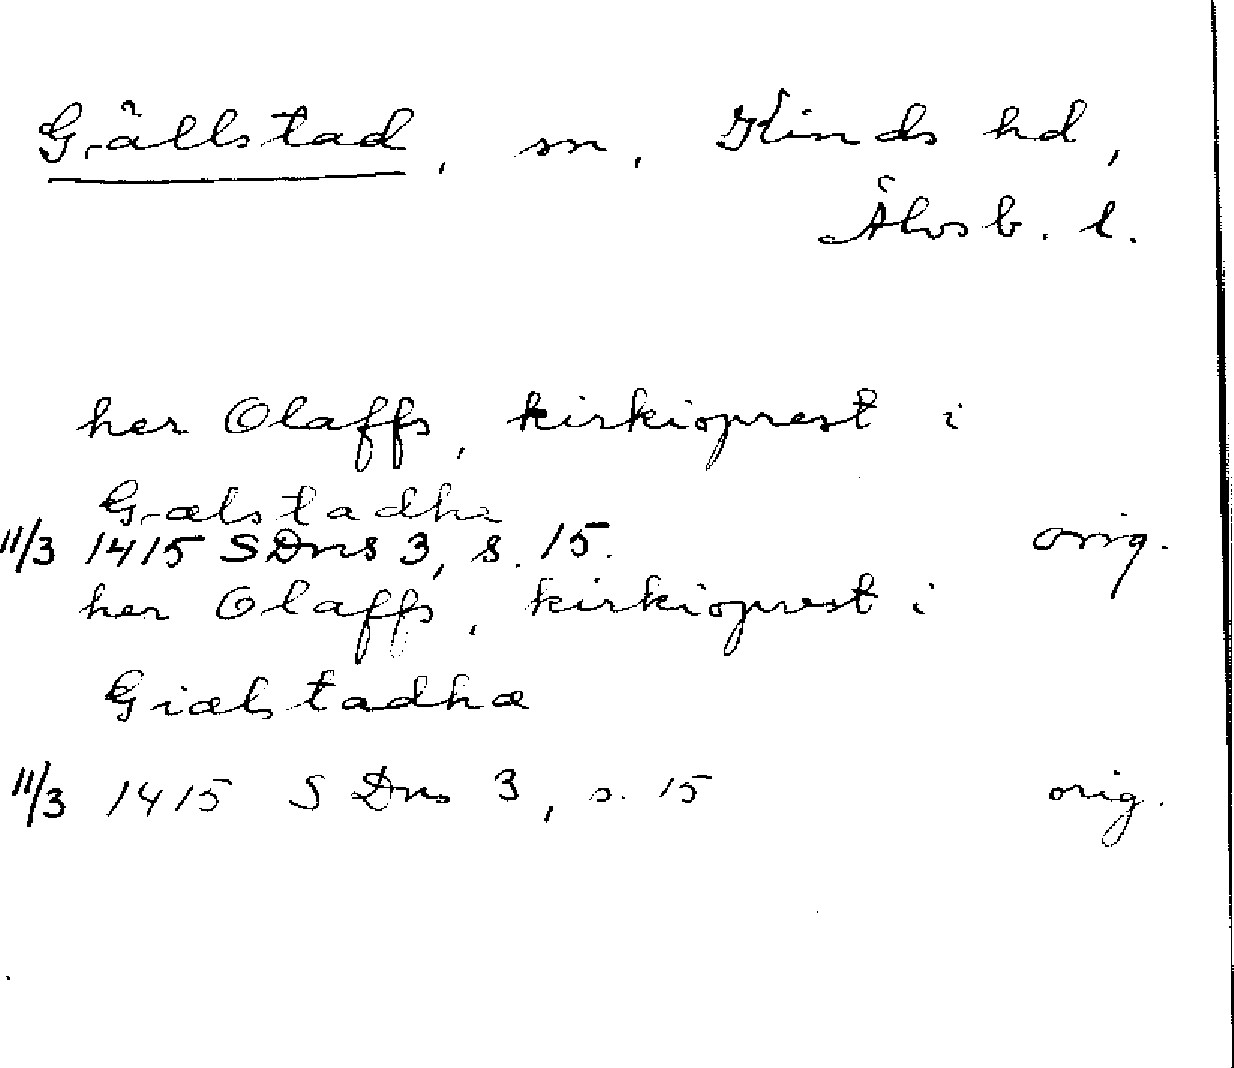 Gällstad, sn, Kinds hd,
Älvsb. l.
her Olaffs, kirkioprest i
Gælstadhæ
11/3 1415 SDns 3, s. 15. orig.
her Olaffs, kirkioprest i
Giælstadhæ
11/3 1415 SDns 3, s. 15 orig.